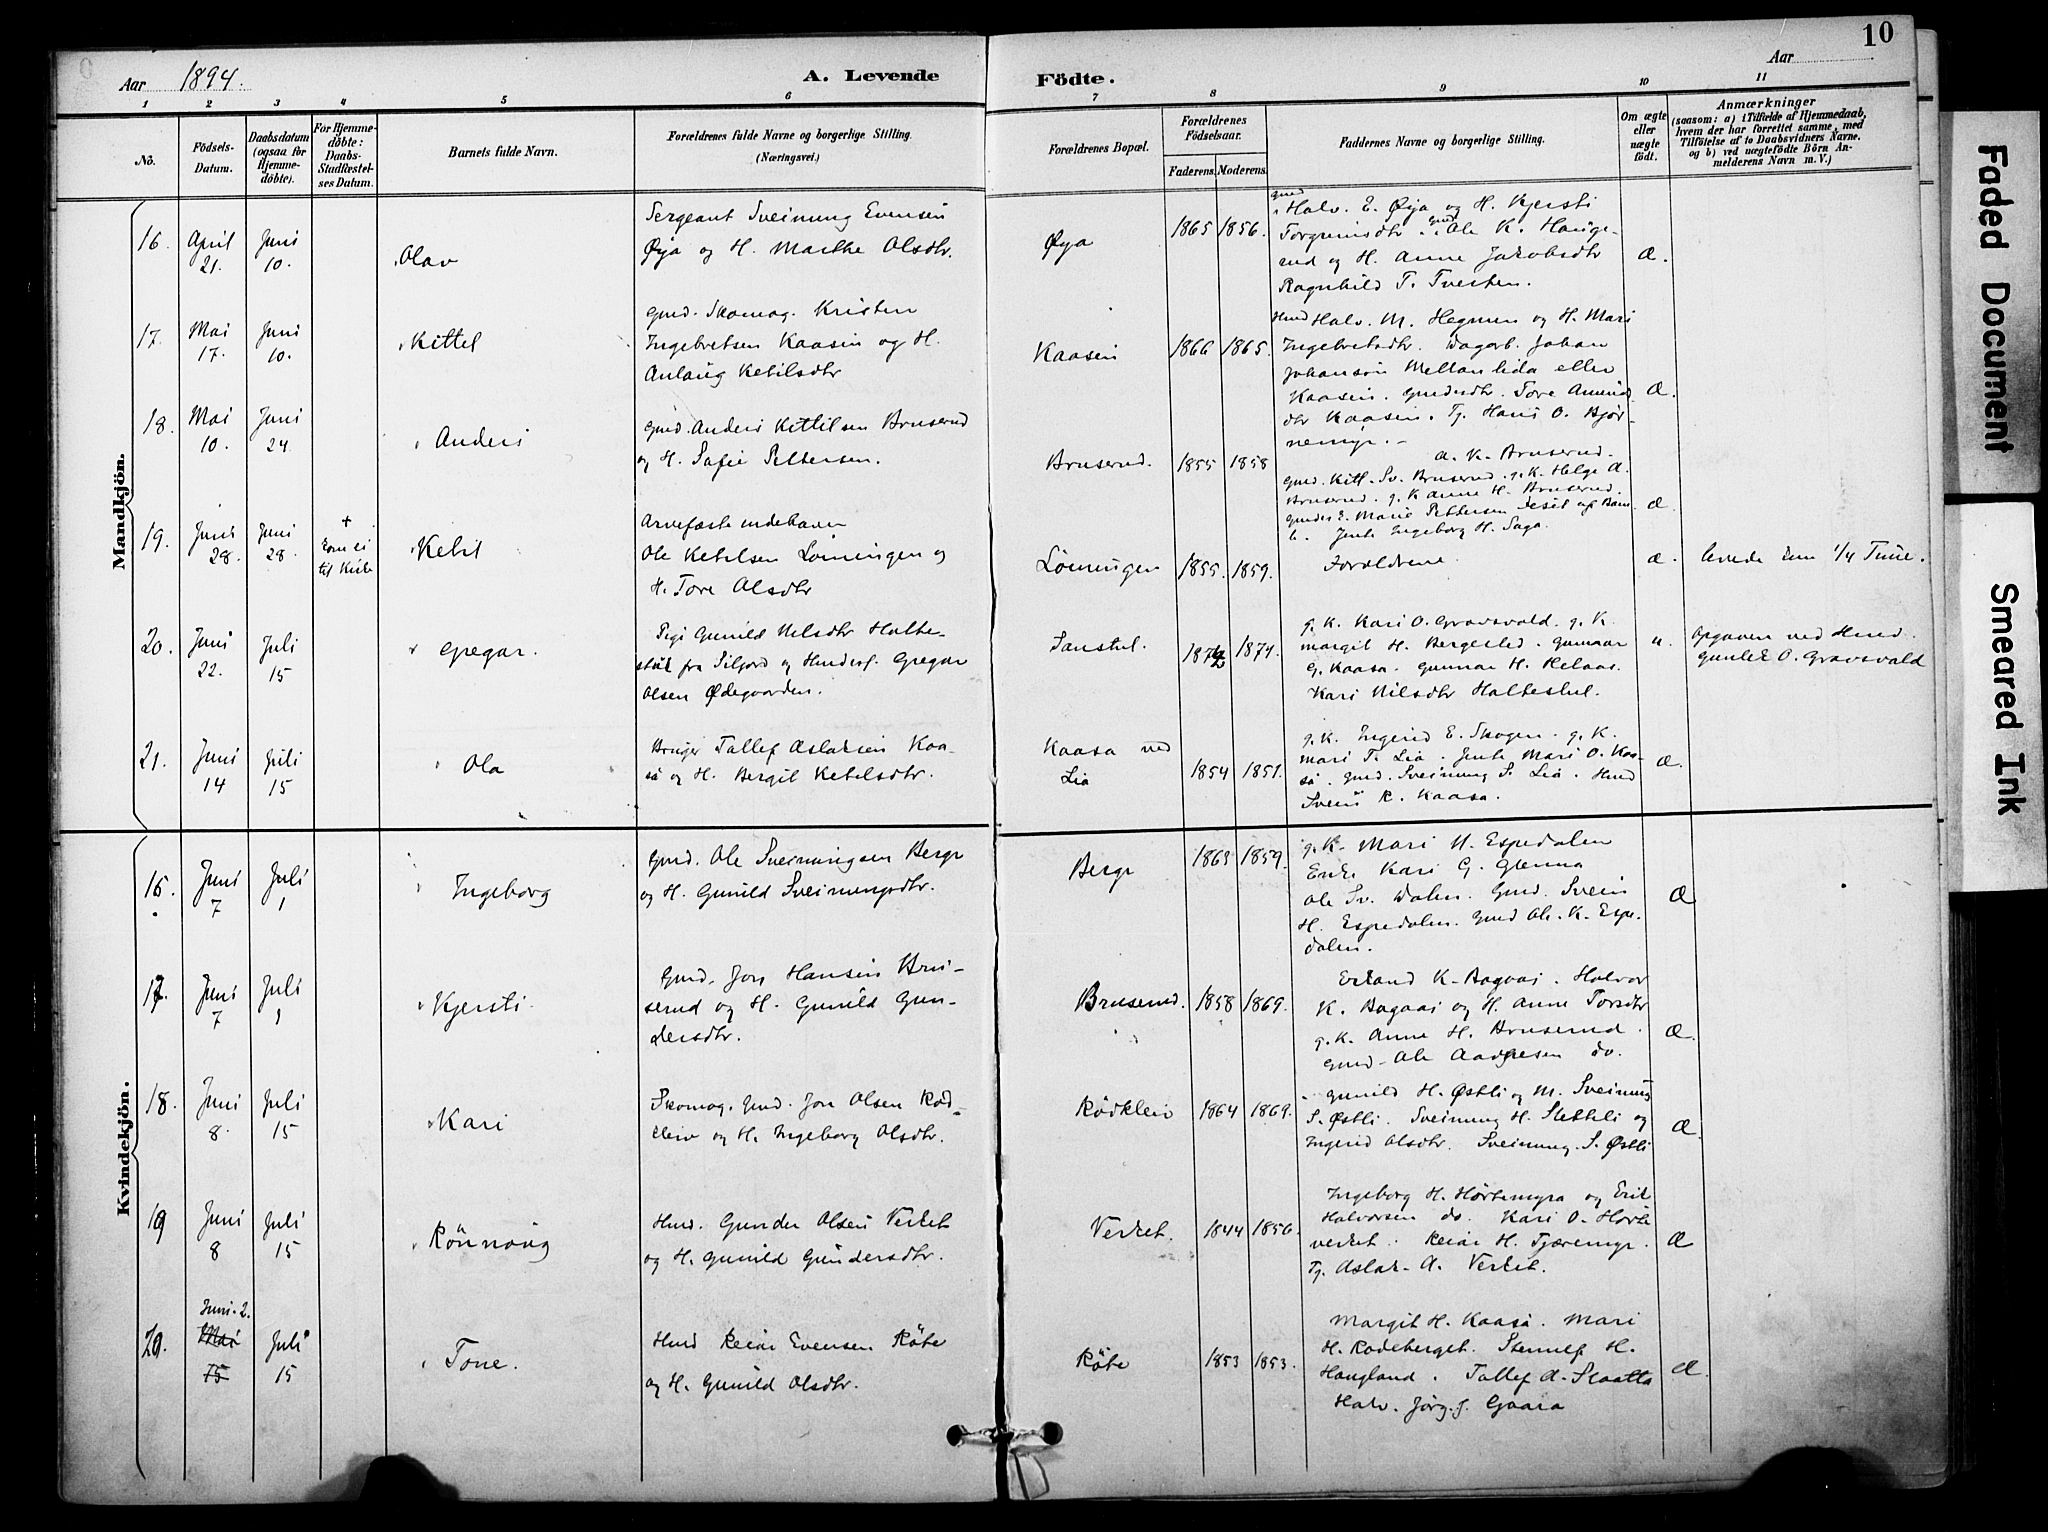 Aar 1894. A. Levende Födte. Aar 10
1 2 3 4 5 6 7 8 9 10 11
No. Födsels-Datum. Daabsdatum (ogsaa for Hjemmedöbte). For Hjemmedöbte: Daabs-Stadfæstelses Datum. Barnets fulde Navn. Forældrenes fulde Navne og borgerlige Stilling. (Næringsvei.) Forældrenes Bopæl. Forældrenes Födselsaar. Faderens. Moderens. Faddernes Navne og borgerlige Stilling. Om ægte eller uægte födt.
Anmærkninger
(saasom: a) i Tilfælde af Hjemmedaab,
hvem der har forrettet samme, med
Tilföielse af to Daabsvidners Navne.
og b) ved uægtefödte Börn An-
melderens Navn m. V.)
Mandkjön.
16. April 21. Juni 10. Olav
Sergeant Sveinung Evensen
Øya og H. Marthe Olsdtr.
Øya 1865 1856.
Gmd Halv. E. Øya og H. Kjersti
Torgrimsdtr. Gmd Ole K. Hauge-
rud og H. Anne Jakobsdtr
Ragnhild T. Tveiten.
Æ.
17. Mai 17. Juni 10. Kittel
Gmd. Skomag. Kristen
Ingebretsen Kaasin og H.
Anlaug Ketilsdtr
Kaasin 1866 1865.
Hmd Halv. M. Hegmen og H. Mari
Ingebretsdtr. Dagarb. Johan
Johansen Mellanlida eller
Kaasin. Gmdsdtr. Tore
dtr Kaasin. Tj. Hans O. Bjør-
nemyr.
Æ.
18. Mai 10. Juni 24. Anders
Gmd. Anders Kittilsen Bruserud
og H. Sofie Pettersen.
Bruserud. 1855 1858
A. K. Bruserud.
Gmd. Kitt. Sv. Bruserud. g. K. Helge A.
Bruserud. g. K Anne H. Bruserud.
Marie Pettersen
Jente Ingeborg H. Saga.
Æ.
19. Juni 28. Juni 28. + Kom ei til Kirke Ketil
Arvefæsteindehaver
Ole Ketilsen Løiningen og
H. Tore Olsdtr
Løiningen 1855. 1859. Forældrene Æ. levede kun 1/4 Time.
20. Juni 22. Juli 15 Gregar.
Pige Gunild Nilsdtr Holte-
stul fra Siljord og Gregar
Olsen Ødegaarden.
1874.
g. K. Kari O. Gravsvald. g. K.
Margit H. Bergestad. Gunnar
G. Kaasa. Gunnar H. Helaas.
Kari Nilsdtr Holtestul.
u.
Opgaven ved Hmd.
Gunlek O. Gravsvald
21. Juni 14 Juli 15 Ola
Bruger Tallef Aslaksen Kaa-
sa og H. Bergit Ketilsdtr.
Kaasa ved
Lia
1854 1851.
g. K. Ingerid E. Skogen. g. K.
Mari T. Lia. Jente Mari O. Kaa-
sa. Gmd. Sveinung S. Lia. Hmd
Svein K. Kaasa.
Æ.
Kvindekjön.
16. Juni 7 Juli 1 Ingeborg
Gmd. Ole Sveinungsen Berge
og H. Gunild Sveinungsdtr.
Berge 1863 1859.
g. K. Mari H. Espedalen
Enke Kari G. Glenna
Ole Sv. Dalen. Gmd. Svein
H. Espedalen. Gmd Ole K. Espe-
dalen.
Æ
17. Juni 7 Juli 1 Kjersti
Gmd. Jon Hansen Bru-
serud og H. Gunild Gun-
dersdtr.
Bruserud. 1858 1869.
Erland K. Bagaas. Halvor
K. Bagaas og H. Anne Torsdtr
g. K. Anne H. Bruserud.
Gmd Ole Aadnesen do.
Æ.
18. Juni 8. Juli 15 Kari
Skomag. Gmd. Jon Olsen Rød-
kleiv og H. Ingeborg Olsdtr.
Rödkleiv 1864 1869.
Gunild H. Østli og M. Sveinung
S. Østli. Sveinung H. Sletteli og
Ingerid Olsdtr. Sveinung S. Østli
Æ.
19 Juni 8 Juli 15 Rönnoug
Hmd. Gunder Olsen Verket
og H. Gunild Gundersdtr.
Verket. 1844 1856.
Ingeborg H. Hørtemyra og Erik
Halvorsen do. Kari O. Hørte
verket. Reiar H. Tjæremyr.
Tj. Aslak A. Verket.
Æ
20. Juni. 2. Mai 15 Juli 15 Tone.
Hmd Reiar Evensen Röte
og H. Gunild Olsdtr.
Röte 1853 1853.
Margit H. Kaasa. Mari
H. Rodeberget. Stennef H.
Haugland. Tallef A. Slaatta
Halv. Jørg. J. Gaara
Æ.
Faded Document
Smeared Ink